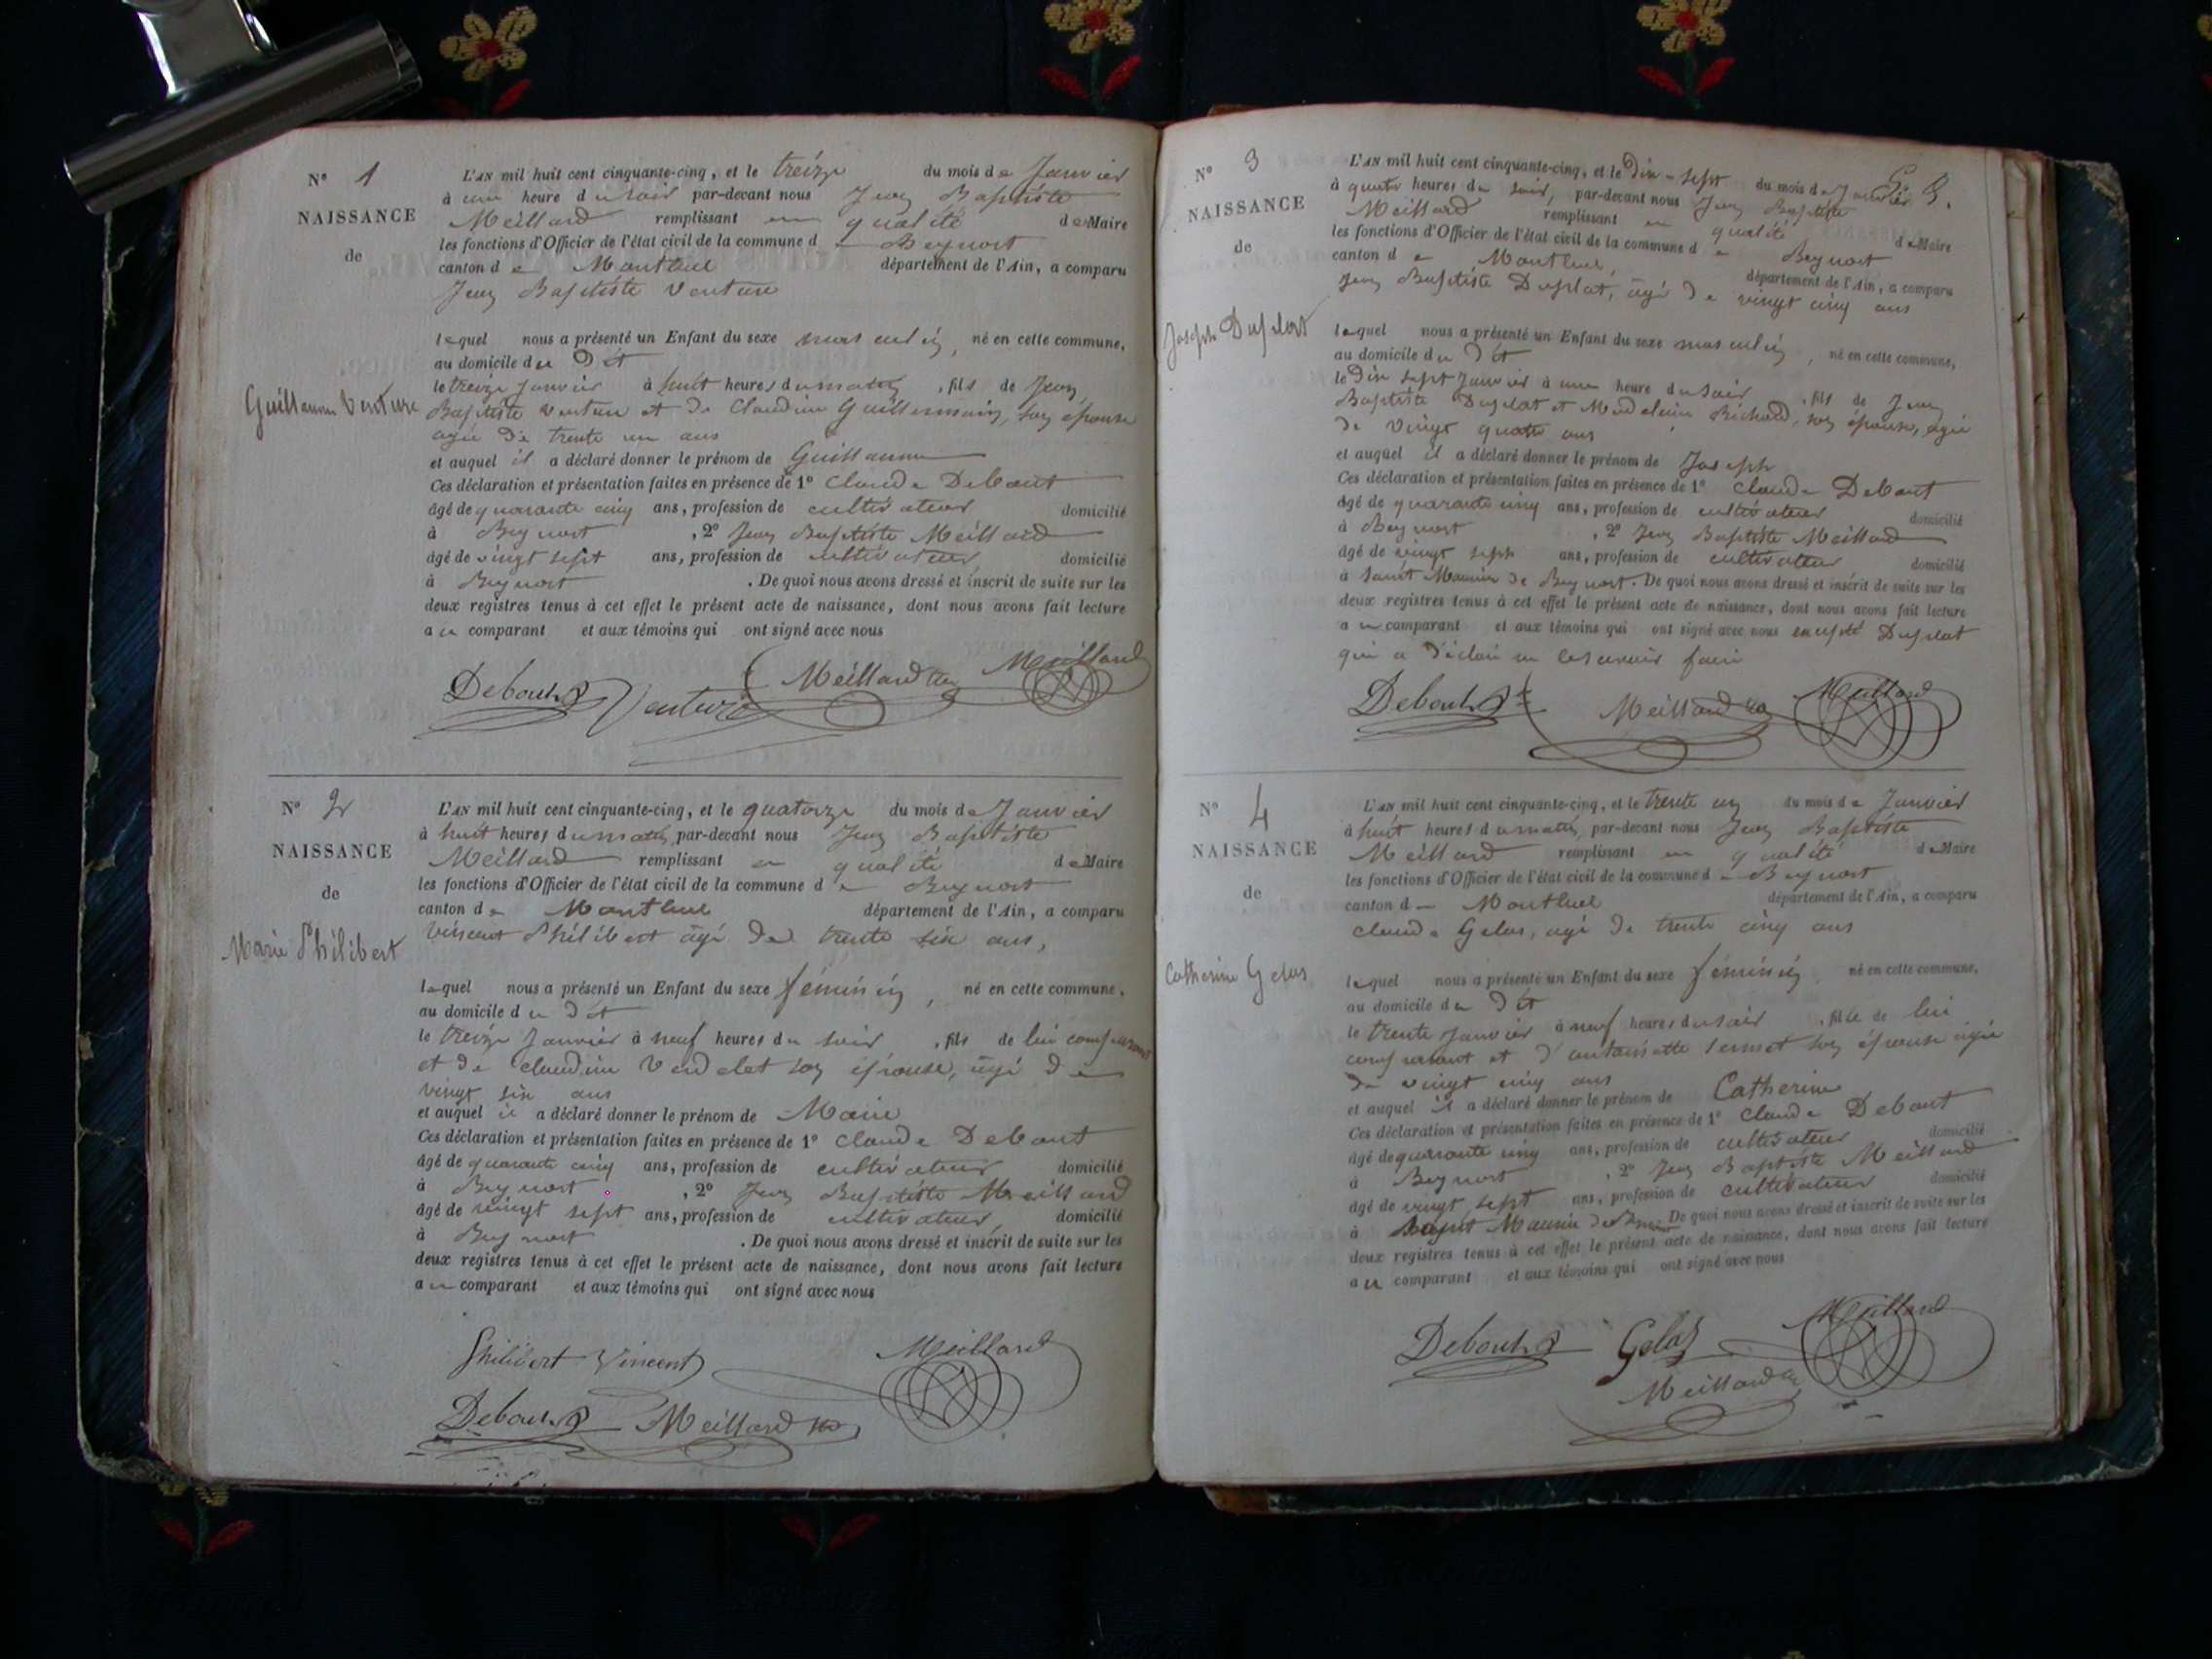 N° 1
NAISSANCE
de
Guillaume Venture
L'AN mil huit cent cinquante-cinq, et le treize du mois de Janvier
à une heure du soir par-devant nous Jean Baptiste
Meillard remplissant en qualité de Maire
les fonctions d'Officier de l'état civil de la commune d Beynost
canton de Montluel département de l'Ain, a comparu
Jean Baptiste Venture
lequel nous a présenté un Enfant du sexe masculin, né en cette commune,
au domicile du dit
le treize Janvier à huit heures du matin, fils de Jean
Baptiste Venture et de Claudine Guillermain, son épouse
agée de trente un ans
et auquel il a déclaré donner le prénom de Guillaume
Ces déclaration et présentation faites en présence de 1° Claude Debout
âgé de quarante cinq ans, profession de cultivateur domicilié
à Beynost, 2° Jean Baptiste Meillard
âgé de vingt sept ans, profession de cultivateur domicilié
à Beynost. De quoi nous avons dressé et inscrit de suite sur les
deux registres tenus à cet effet le présent acte de naissance, dont nous avons fait lecture
au comparant et aux témoins qui ont signé avec nous
Debout Venture Meillard Meillard
N° 2
NAISSANCE
de
Marie Philibert
L'AN mil huit cent cinquante-cinq, et le quatorze du mois de Janvier
à huit heures du matin, par-devant nous Jean Baptiste
Meillard remplissant en qualité de Maire
les fonctions d'Officier de l'état civil de la commune de Beynost
canton de Montluel département de l'Ain, a comparu
Vincent Philibert âgé de trente six ans,
lequel nous a présenté un Enfant du sexe féminin, né en cette commune,
au domicile du dit
le treize Janvier à neuf heures du soir, fils de lui comparant
et de Claudine Verdelet son épouse, âgé de
vingt six ans
et auquel il a déclaré donner le prénom de Marie
Ces déclaration et présentation faites en présence de 1° Claude Debout
âgé de quarante cinq ans, profession de cultivateur domicilié
à Beynost, 2° Jean Baptiste Meillard
âgé de vingt sept ans, profession de cultivateur, domicilié
à Beynost. De quoi nous avons dressé et inscrit de suite sur les
deux registres tenus à cet effet le présent acte de naissance, dont nous avons fait lecture
au comparant et aux témoins qui ont signé avec nous
Philibert Vincent Meillard
Debout Meillard
N° 3
NAISSANCE
de
Joseph Duplat
L'AN mil huit cent cinquante-cinq, et le Dix-sept du mois de Janvier
à quatre heures du soir, par-devant nous Jean Baptiste
Meillard remplissant en qualité de Maire
les fonctions d'Officier de l'état civil de la commune de Beynost
canton de Montluel, département de l'Ain, a comparu
Jean Baptiste Duplat, âgé de vingt cinq ans
lequel nous a présenté un Enfant du sexe masculin, né en cette commune,
au domicile du dit
le Dix sept Janvier à une heure du soir, fils de Jean
Baptiste Duplat et Madeleine Richard, son épouse, agée
de vingt quatre ans
et auquel il a déclaré donner le prénom de Joseph
Ces déclaration et présentation faites en présence de 1° Claude Debout
âgé de quarante cinq ans, profession de cultivateur domicilié
à Beynost, 2° Jean Baptiste Meillard
âgé de vingt sept ans, profession de cultivateur domicilié
à Saint Maurice de Beynost. De quoi nous avons dressé et inscrit de suite sur les
deux registres tenus à cet effet le présent acte de naissance, dont nous avons fait lecture
au comparant et aux témoins qui ont signé avec nous excepté Duplat
qui a déclaré ne le savoir faire
Debout Meillard Meillard
N° 4
NAISSANCE
de
Catherine Gelas
L'AN mil huit cent cinquante-cinq, et le trente un du mois de Janvier
à huit heures du matin, par-devant nous Jean Baptiste
Meillard remplissant en qualité de Maire
les fonctions d'Officier de l'état civil de la commune de Beynost
canton d Montluel département de l'Ain, a comparu
Claude Gelas, agé de trente cinq ans
lequel nous a présenté un Enfant du sexe féminin, né en cette commune,
au domicile du dit
le trente Janvier à neuf heures du soir, fille de lui
comparant et d'antoinette son épouse agée
de vingt cinq ans
et auquel il a déclaré donner le prénom de Catherine
Ces déclaration et présentation faites en présence de 1° Claude Debout
âgé de quarante cinq ans, profession de cultivateur domicilié
à Beynost, 2° Jean Baptiste Meillard
âgé de vingt sept ans, profession de cultivateur domicilié
à Saint Maurice de De quoi nous avons dressé et inscrit de suite sur les
deux registres tenus à cet effet le présent acte de naissance, dont nous avons fait lecture
au comparant et aux témoins qui ont signé avec nous
Debout Gelas Meillard
Meillard